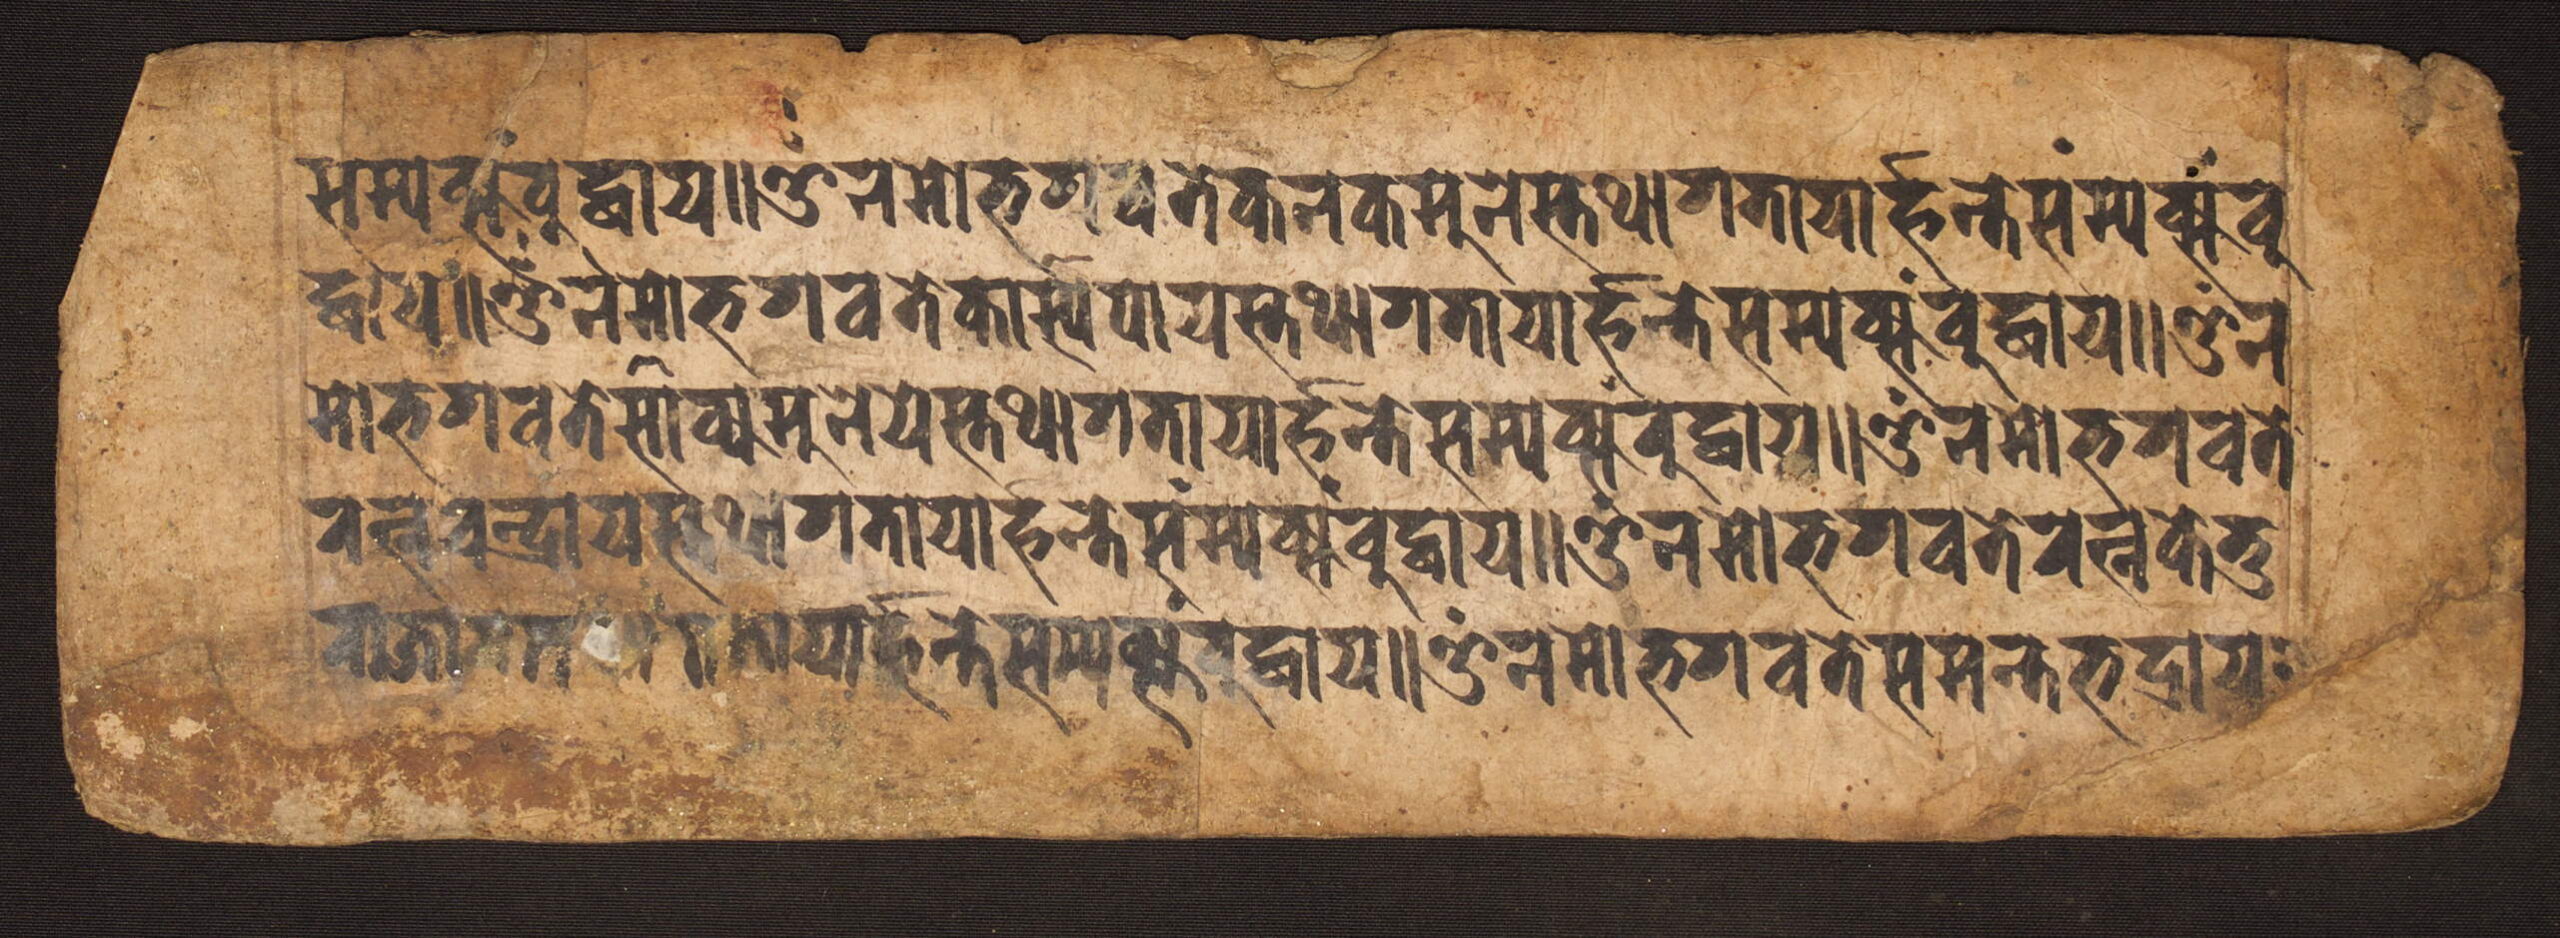 सम्यक्संबुद्धाय॥ॐनमोभगवतेकनकमुनेस्तथागतायार्हन्तेसंम्यक्संबु
द्धाय॥ॐनमोभगवतेकार्स्यपायस्तथागतायार्हन्तेसम्यक्संबुद्धाय॥ॐन
मोभगवतेसाक्यमुनेयेस्तथागतायार्हन्तेसम्यक्संबुद्धाय॥ॐनमोभगवते
रत्नचन्द्रायस्तथागतायार्हन्तेसंम्यक्संबुद्धाय॥ॐनमोभगवतेरत्नकेतु
तायार्हन्तेसम्यक्संबुद्धाय॥ॐनमोभगवतेसमन्तभद्रायः